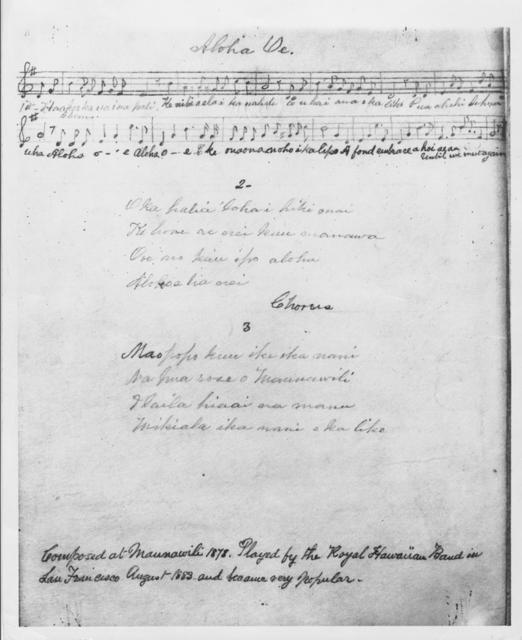 Aloha Oe.
1st- Haaheo ka ua ina pali Ke nihi aela i ka nahele E uhai ana i ka liko Pua ahihi lehua
Chorus
uka Aloha o - - e Aloha o - e. E ke onaona noho i ka lipo A fond embrace a hoi ae au
Until we meet again
2-
O ka halia 'loha i hiki mai
Ke hone ae nei kuu manawa
Ooe no kuu ipo aloha
A loko e hana nei
Chorus
3
Maopopo kuu ike ika nani
Na pua rose o Maunawili
I laila hiaai na manu
Mikiala ika nani o ka liko
Composed at Maunawili 1878. Played by the Royal Hawaiian Band in
San Francisco August 1883 and became very Popular.